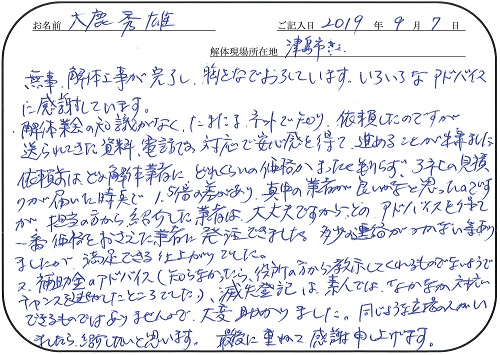 お名前 大鹿秀雄 ご記入日 2019 年 9 月 7 日
解体現場所在地 津島市
無事、解体工事が完了し、胸をなでおろしています。いろいろなアドバイス
に感謝しています。
解体業会の知識がなく、たまたまネットで知り、依頼したのですが
送られてきた資料、電話での対応で安心感を得て、進めることが出来ました
依頼前はどの解体業者に、どれくらいの価格かまったく判らず、3ネ社の見積
りが届いた時点で 1.5倍の差があり、真中の業者が良いかなと思ったのです
が、担当の方から紹介した業者は、大丈夫ですから、とのアドバイスを得て
一番価格をおさえた業者に発注できました。多少の連絡がつかない等あり
ましたが満足できる仕上がりでした。
又、補助金のアドバイス(知らなかったら、役所の方から教示してくれるものでないようで
チャンスを逃したところでした)、滅失登記は素人では、なかなか対応
できるものではありませんので、大変助かりました。同じような立場の人がい
ましたら、紹介したいと思います。最後に重ねて感謝申し上げます。